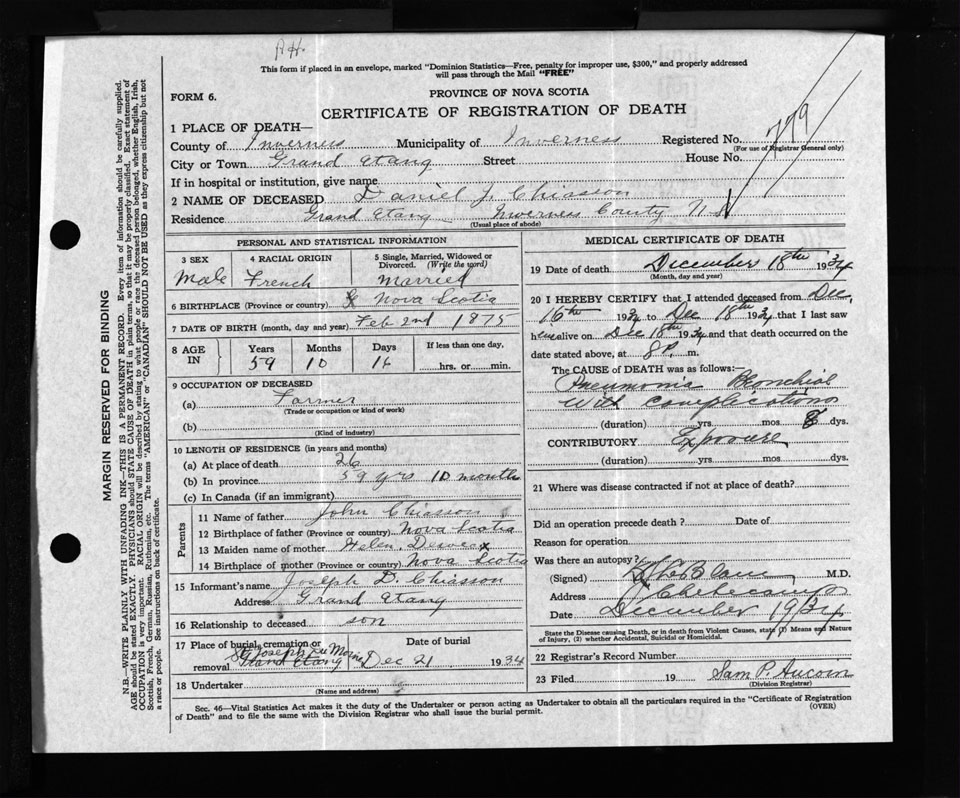 P.H.
This form if placed in an envelope, marked "Dominion Statistics—Free, penalty for improper use, $300," and properly addressed
will pass through the Mail "FREE"
PROVINCE OF NOVA SCOTIA
FORM 6.
CERTIFICATE OF REGISTRATION OF DEATH
779
1 PLACE OF DEATH—
County of Inverness Municipality of Inverness Registered No.
(For use of Registrar General only)
City or Town Grand Etang Street House No.
If in hospital or institution, give name
2 NAME OF DECEASED Daniel J. Chiasson
Residence Grand Etang Inverness County N.S
(Usual place of abode)
PERSONAL AND STATISTICAL INFORMATION
3 SEX 4 RACIAL ORIGIN 5 Single, Married, Widowed or Divorced. (Write the word)
Male French Married
6 BIRTHPLACE (Province or county) Nova Scotia
7 DATE OF BIRTH (month, day and year) Feb 2nd 1875
8 AGE IN Years Months Days If less than one day,
59 10 16 hrs. or min.
9 OCCUPATION OF DECEASED
(a) Farmer
(Trade or occupation or kind of work)
(b)
(Kind of industry)
10 LENGTH OF RESIDENCE (in years and months)
(a) At place of death 26
(b) In province 59 yrs 10 months
(c) In Canada (if an immigrant)
Parents
11 Name of father John Chiasson
12 Birthplace of father (Province or country) Nova Scotia
13 Maiden name of mother Helen
14 Birthplace of mother (Province or country) Nova Scotia
15 Informant's name Joseph D. Chiasson
Address Grand Etang
16 Relationship to deceased son
17 Place of burial, cremation or removal St Joseph Du Moine Grand Etang Date of burial Dec 21 1934
18 Undertaker
(Name and address)
MEDICAL CERTIFICATE OF DEATH
19 Date of death December 18th 1934
(Month, day and year)
20 I HEREBY CERTIFY that I attended deceased from Dec.
16th 1934 to Dec 18th 1934 that I last saw
him alive on Dec 18th 1934 and that death occurred on the
date stated above, at 8 P. m.
The CAUSE of DEATH was as follows:—
Pneumonia Bronchial
With complications
(duration) yrs. mos. 8 dys.
CONTRIBUTORY Exposure
(duration) yrs. mos. dys.
21 Where was disease contracted if not at place of death?
Did an operation precede death? Date of
Reason for operation
Was there an autopsy?
(Signed) M.D.
Address Cheticamp
Date December 1934
State the Disease causing Death, or in death from Violent Causes, state (1) Means and Nature
of Injury, (2) whether Accidental, Suicidal or Homicidal.
22 Registrar's Record Number
23 Filed 19 Sam P. Aucoin
(Division Registrar)
Sec. 46—Vital Statistics Act makes it the duty of the Undertaker or person acting as Undertaker to obtain all the particulars required in the "Certificate of Registration
of Death" and to file the same with the Division Registrar who shall issue the burial permit.
(OVER)
MARGIN RESERVED FOR BINDING
N.B.—WRITE PLAINLY WITH UNFADING INK—THIS IS A PERMANENT RECORD. Every item of information should be carefully supplied.
AGE should be stated EXACTLY. PHYSICIANS should STATE CAUSE OF DEATH in plain terms, so that it may be properly classified. Exact statement of
OCCUPATION is very important. RACIAL ORIGIN will be described by stating to what people or race the deceased person belonged, whether English, Irish,
Scottish, French, German, Russian, Ruthenian, etc. The terms "AMERICAN" or "CANADIAN" SHOULD NOT BE USED as they express citizenship but not
a race or people. See instructions on back of certificate.